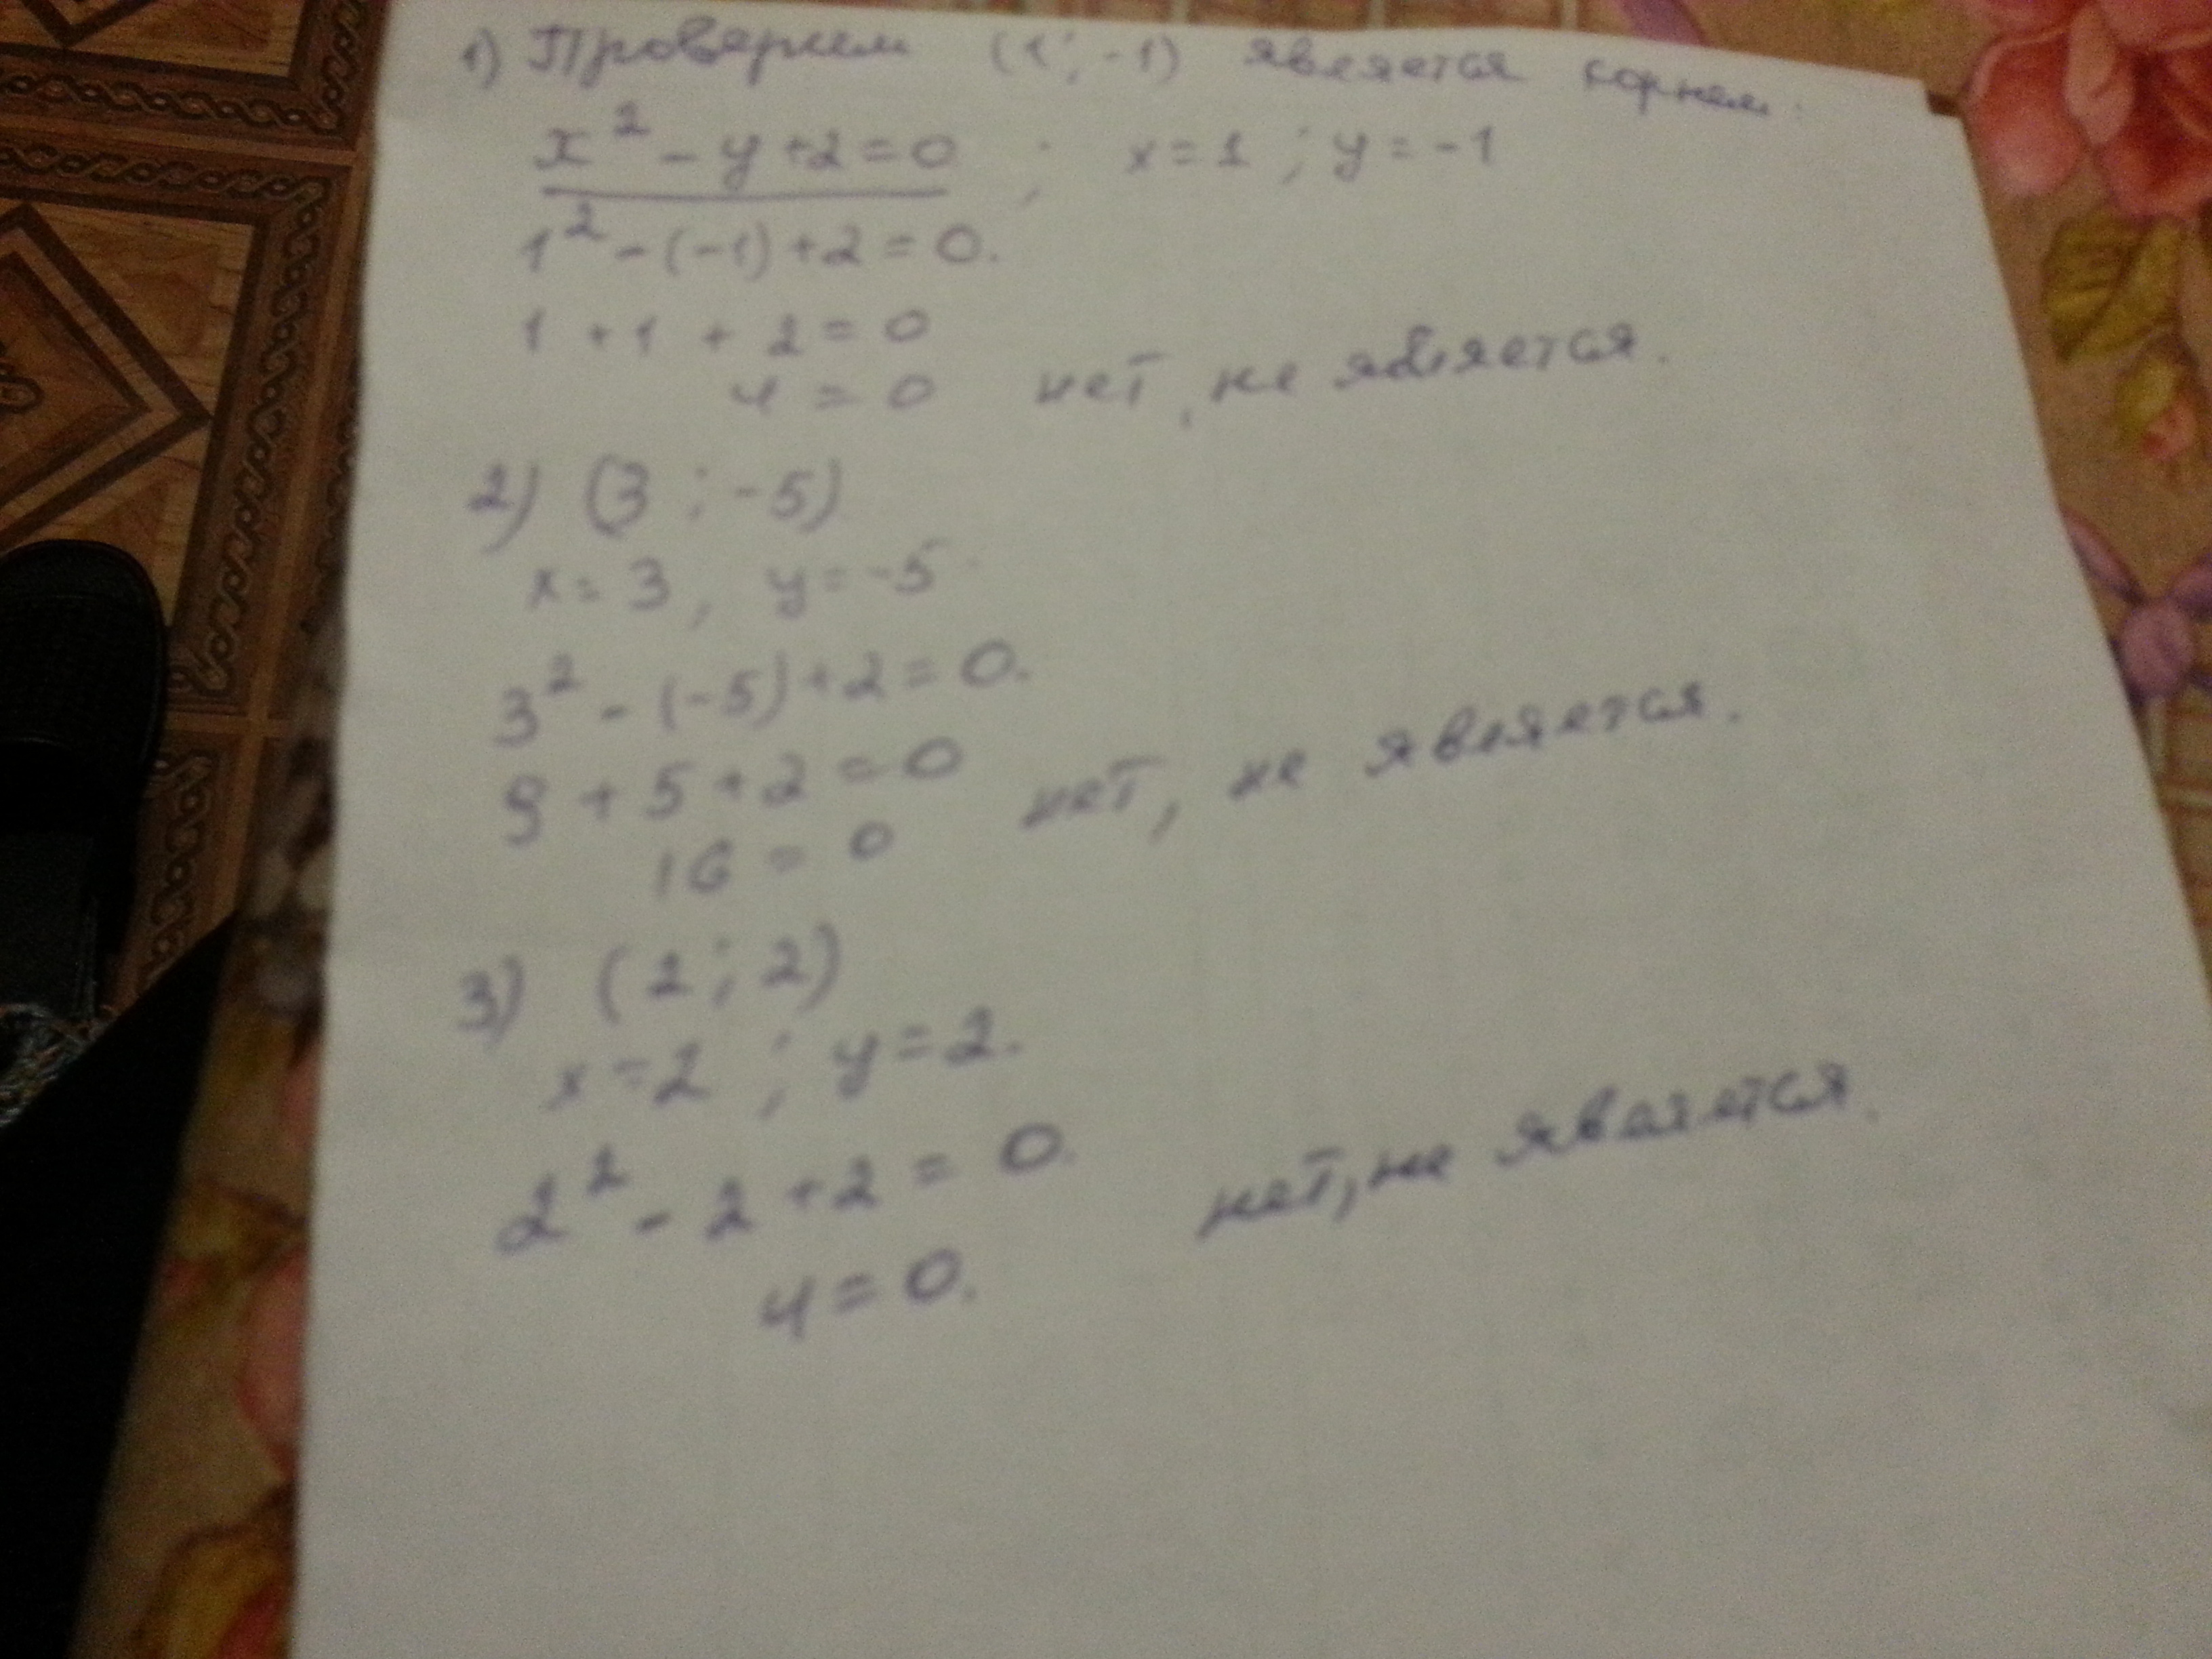 1) Проверием (1; -1) является корнем:
x² - y + 2 = 0 ; x = 1 ; y = -1
1² - (-1) + 2 = 0.
1 + 1 + 2 = 0
4 = 0 нет, не является.
2) (3 ; -5)
x = 3, y = -5
3² - (-5) + 2 = 0.
9 + 5 + 2 = 0
16 = 0 нет, не является.
3) (2 ; 2)
x = 2 ; y = 2.
2² - 2 + 2 = 0.
4 = 0. нет, не является.